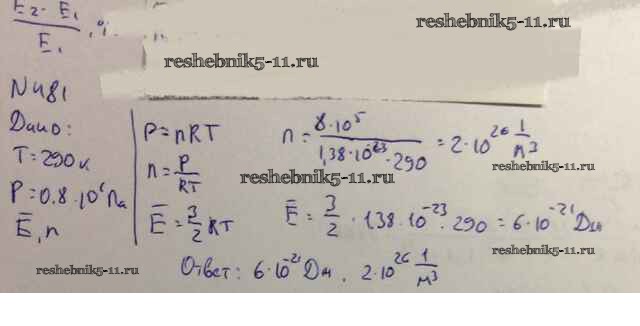 E₂ - E₁ / E₁ , %.
reshebnik5-11.ru
reshebnik5-11.ru
N481
Дано:
T=290к
P=0.8·10⁶Па
Ē, n
P=nRT
n = P / RT
Ē = 3/2 RT
n = 8·10⁵ / 1,38·10⁻²³·290 = 2·10²⁶ 1/м³
reshebnik5-11.ru
reshebnik5-11.ru
Ē = 3/2 · 1,38·10⁻²³·290 = 6·10⁻²¹ Дж
reshebnik5-11.ru
Ответ: 6·10⁻²¹ Дж, 2·10²⁶ 1/м³
reshebnik5-11.ru